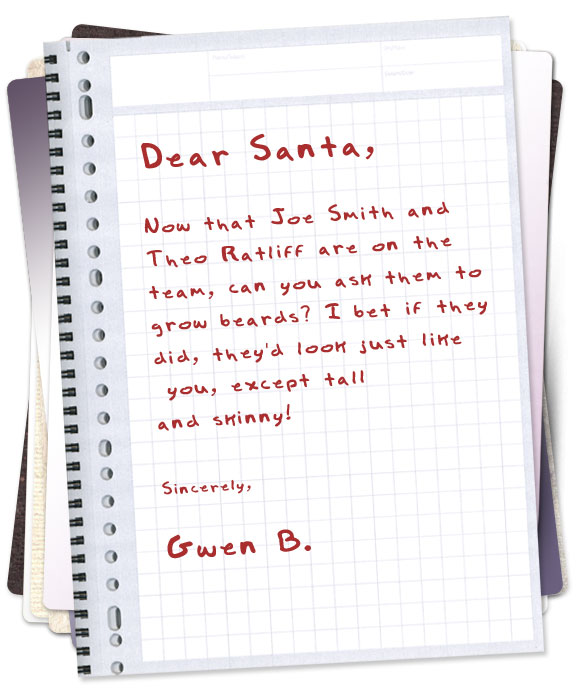 Dear Santa,
Now that Joe Smith and
Theo Ratliff are on the
team, can you ask them to
grow beards? I bet if they
did, they'd look just like
you, except tall
and skinny!
Sincerely,
Gwen B.